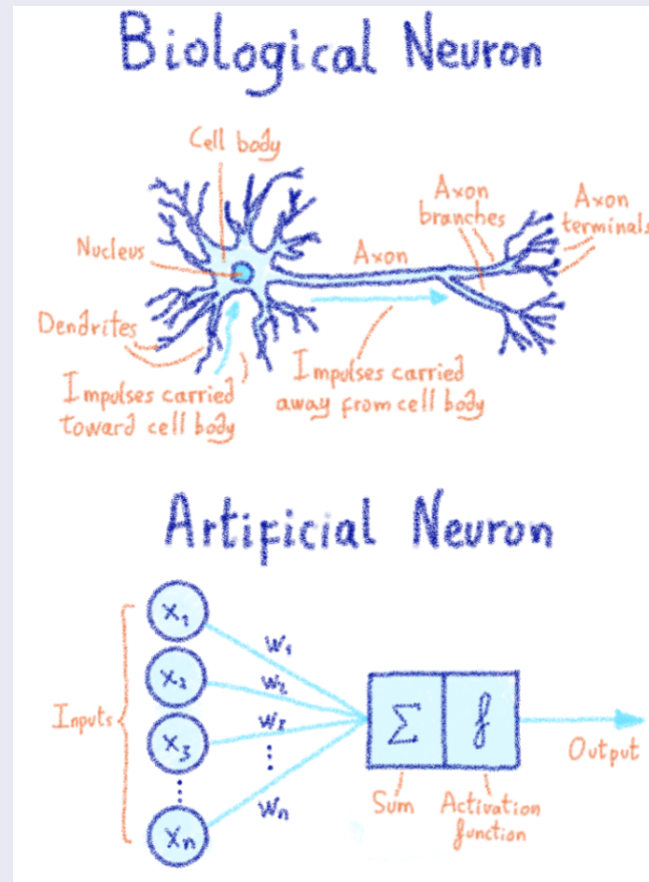 Biological Neuron
Cell body
Axon
branches
Axon
terminals
Nucleus
Axon
Dendrites
Impulses carried
toward cell body
Impulses carried
away from cell body
Artificial Neuron
Inputs
x₁
x₂
x₃
⋮
xₙ
w₁
w₂
w₃
⋮
wₙ
Σ
f
Output
Sum
Activation
function